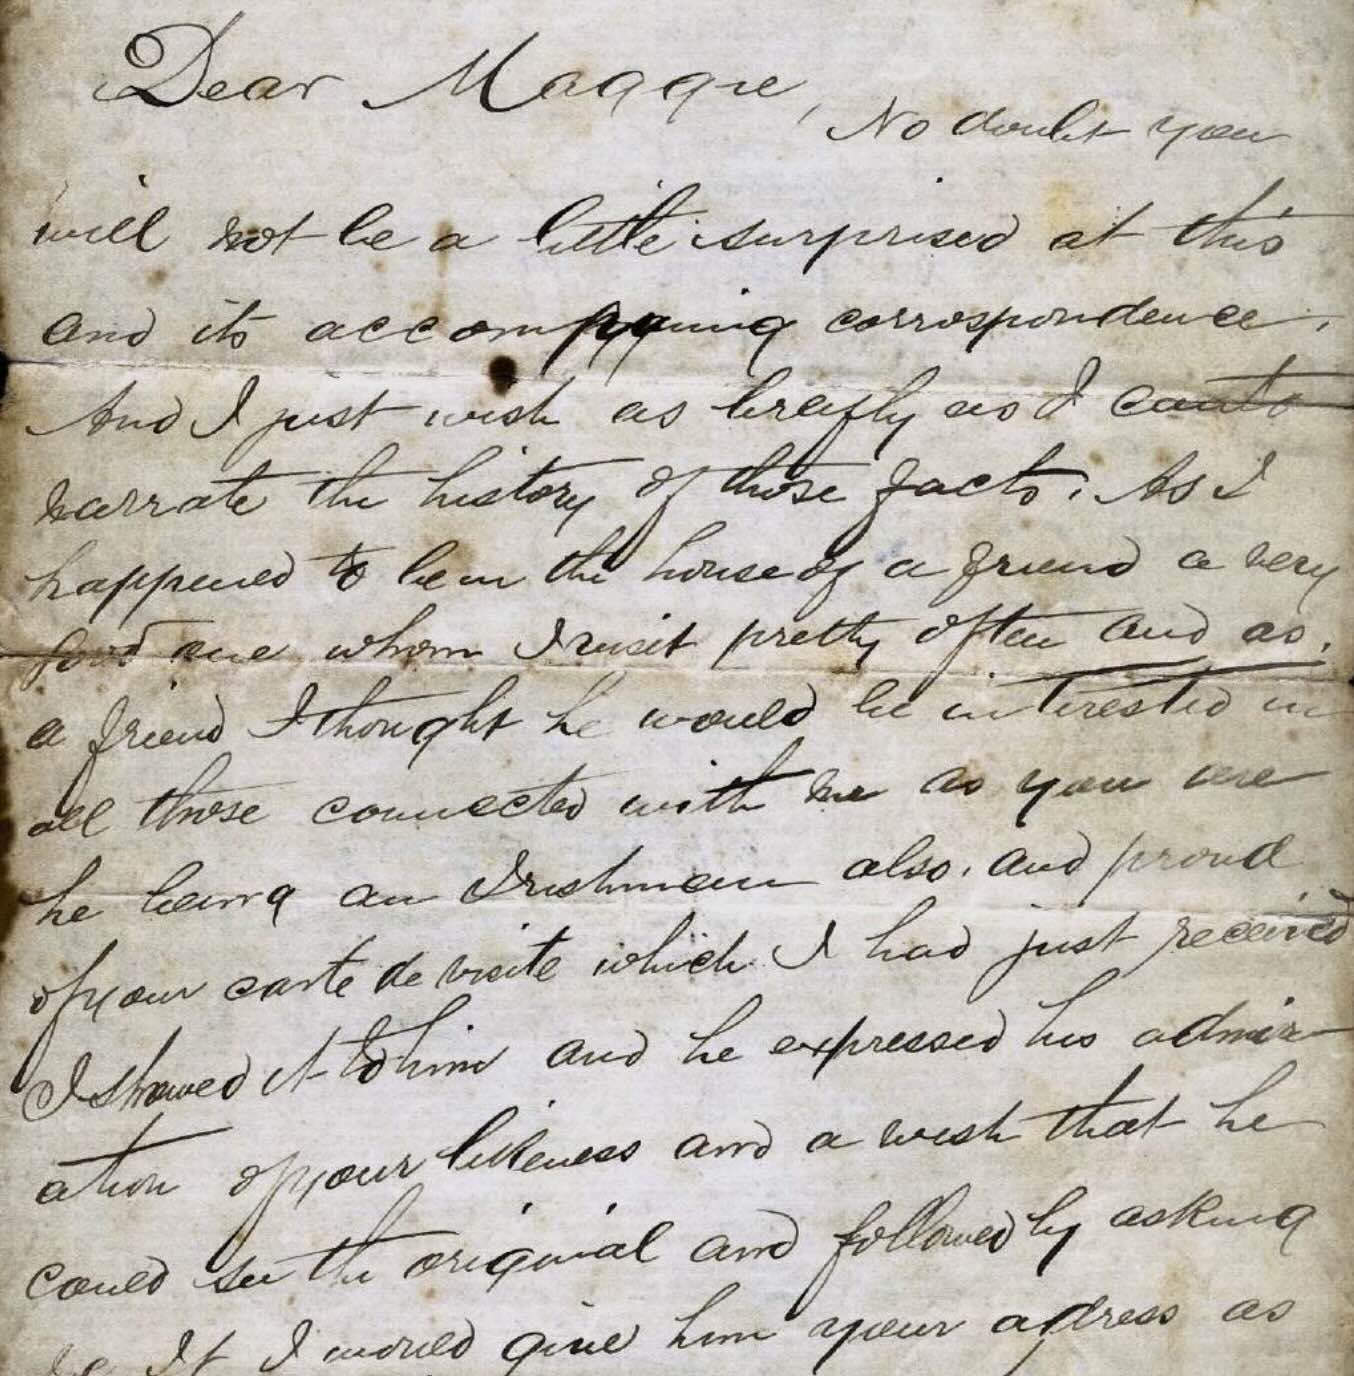 Dear Maggie,
No doubt you
will not be a little surprised at this
and its accompaning corrospondence.
And I just wish as breifly as I can to
narrate the history of those facts. As I
happened to be in the house of a friend a very
good one whom I visit pretty often and as
a friend I thought he would be interested in
all those connected with me as you are
he being an Irishman also. and proud
of your carte de visite which I had just received
I showed it to him and he expressed his admir-
ation of your likeness and a wish that he
could see the original and followed by asking
me If I would give him your adress as